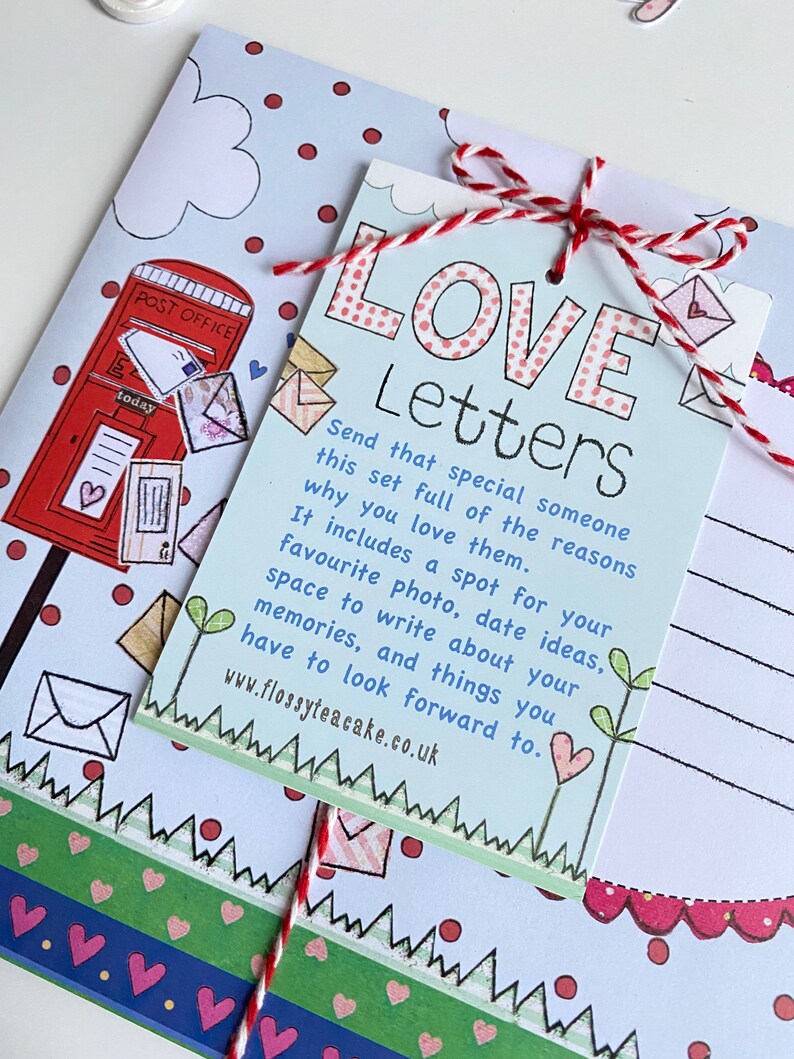 POST OFFICE
E
today
LOVE
Letters
Send that special someone
this set full of the reasons
why you love them.
It includes a spot for your
favourite photo, date ideas,
space to write about your
memories, and things you
have to look forward to.
www.flossyteacake.co.uk